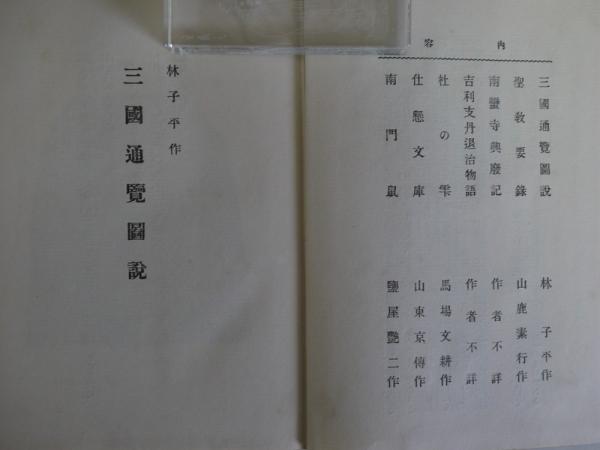 內容
三國通覽圖說 林子平作
聖敎要錄 山鹿素行作
南蠻寺興廢記 作者不詳
吉利支丹退治物語 作者不詳
社の雫 馬場文耕作
仕懸文庫 山東京傳作
南門鼠 鹽屋艷二作
林子平作
三國通覽圖說